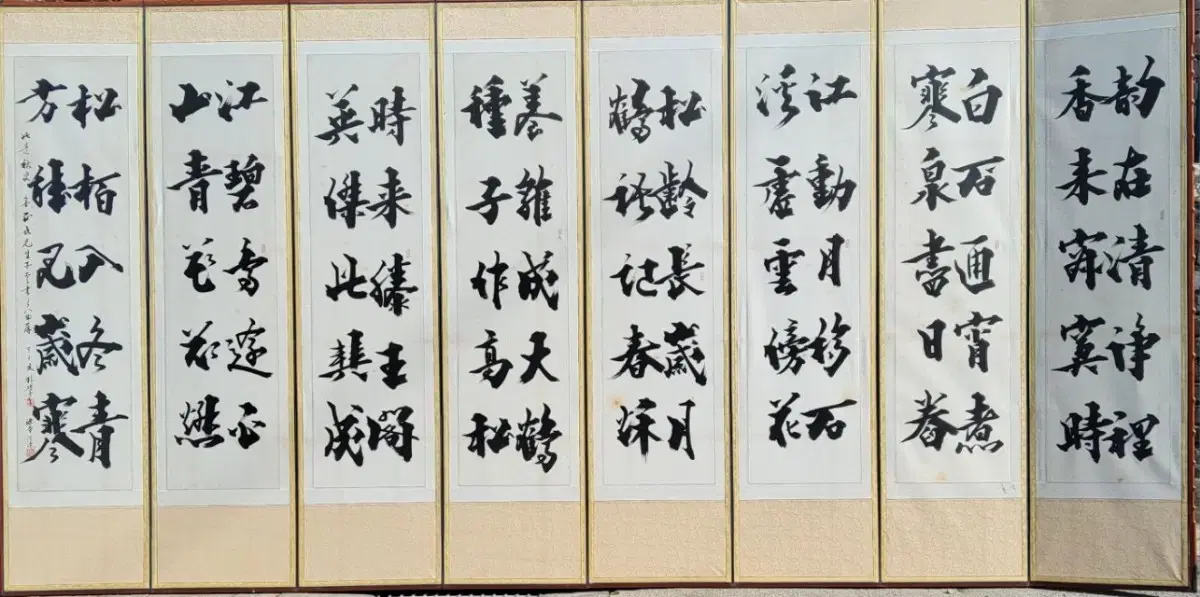 韵在清淨裡
香来寂寞時
白石通宵煮
寒泉盡日舂
江動月移石
溪虛雲傍花
松齡長歲月
鶴語記春秋
養雛成大鶴
種子作高松
時来滕王閣
英傑此龔成
江碧鳥逾白
山青花欲燃
松栢入冬青
方能見歲寒